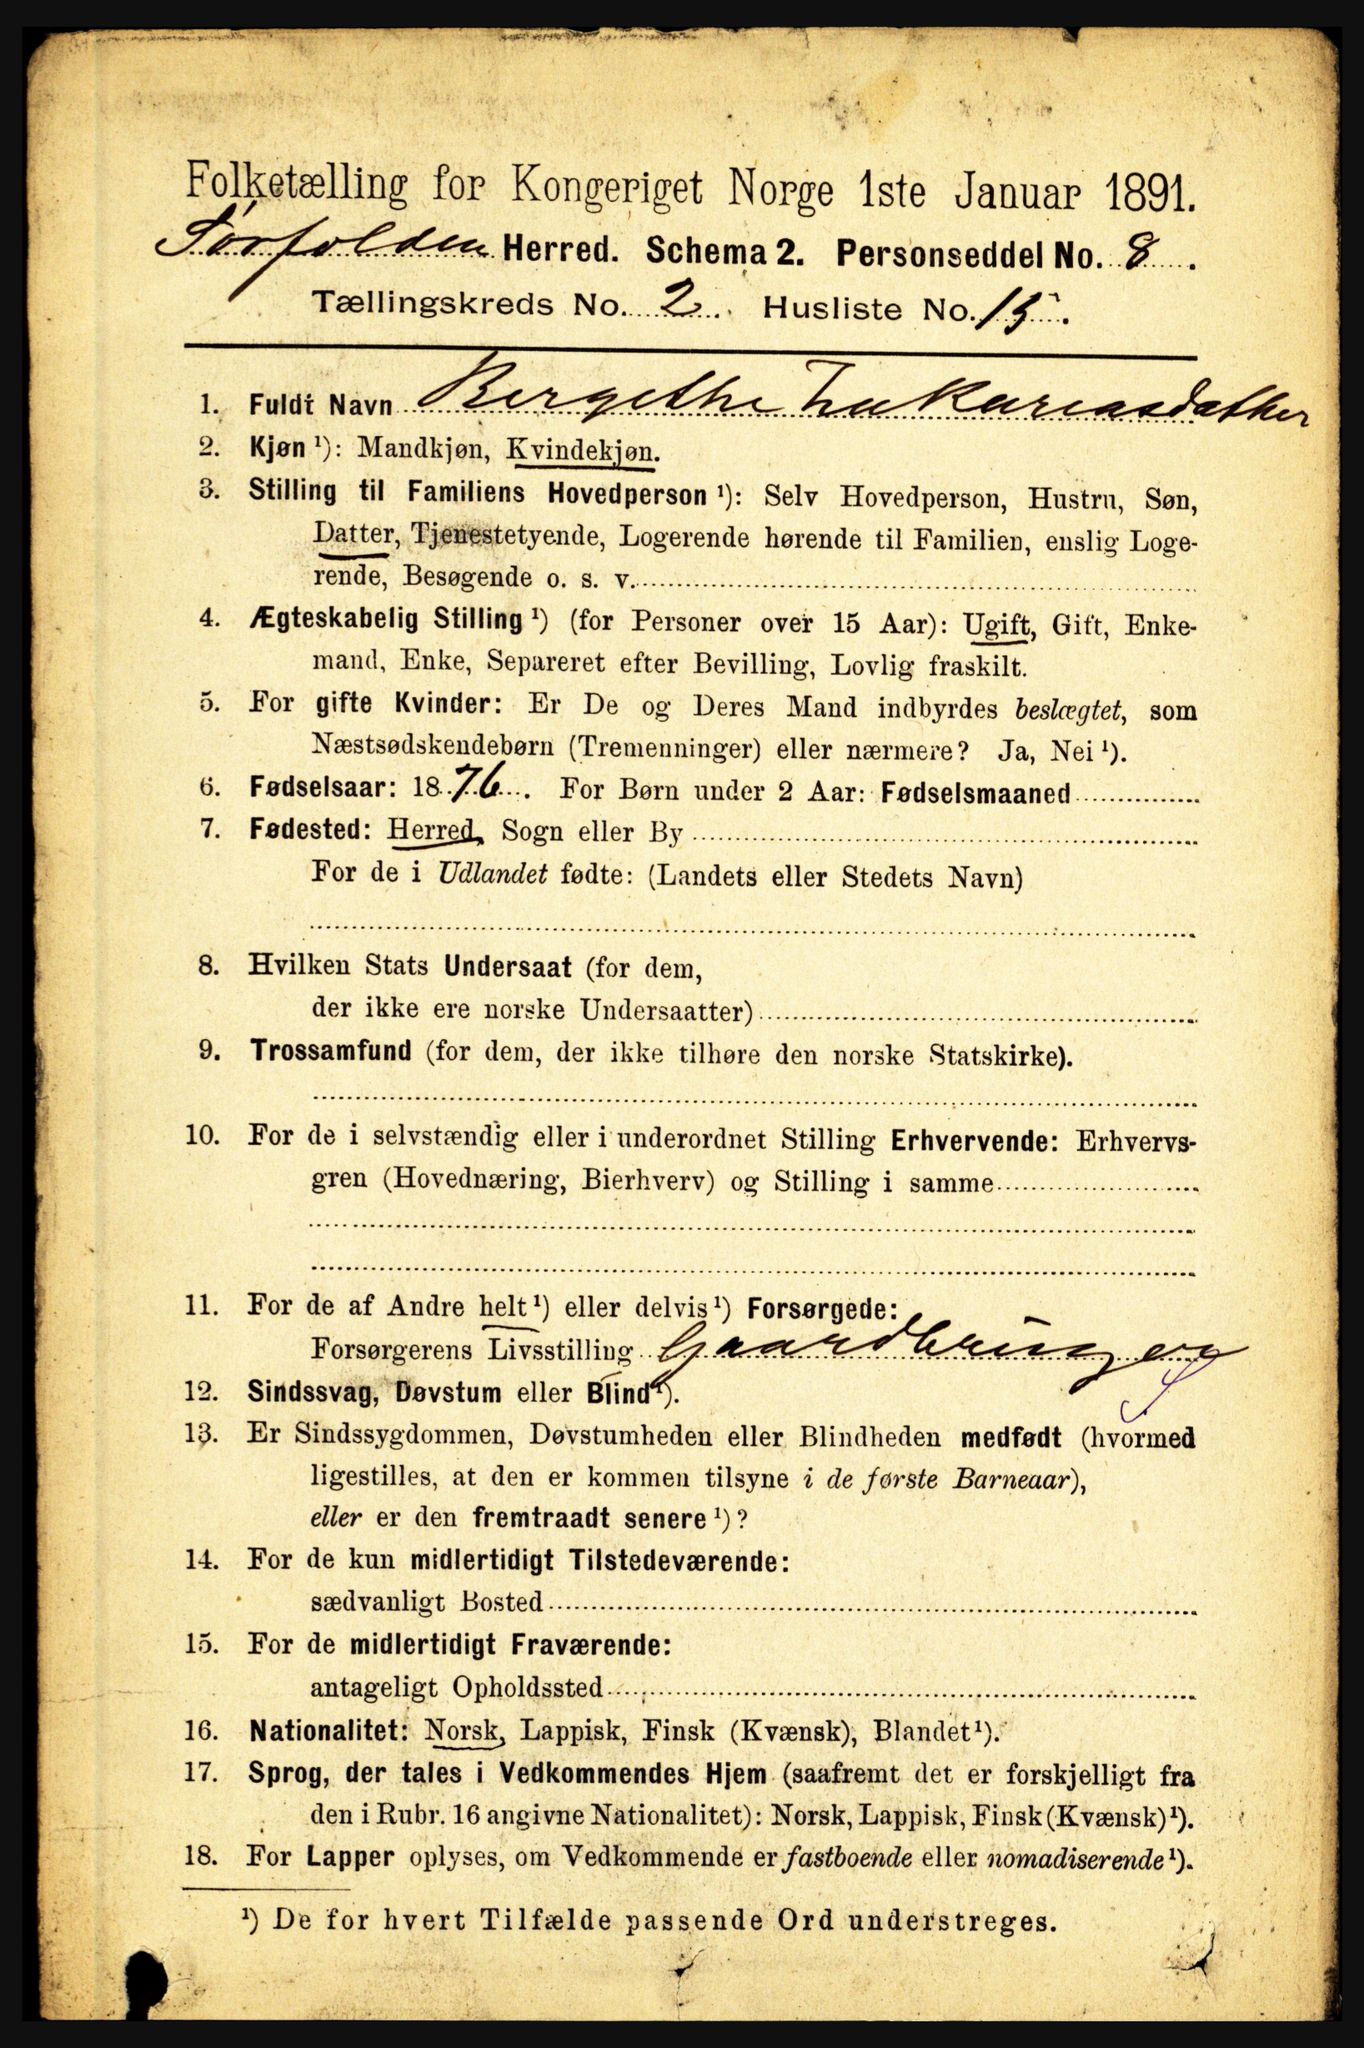 Folketælling for Kongeriget Norge 1ste Januar 1891.
Sørfolden Herred. Schema 2. Personseddel No. 8.
Tællingskreds No. 2. Husliste No. 15.
1. Fuldt Navn Bergethe Zakariasdather
2. Kjøn ¹): Mandkjøn, Kvindekjøn.
3. Stilling til Familiens Hovedperson ¹): Selv Hovedperson, Hustru, Søn,
Datter, Tjenestetyende, Logerende hørende til Familien, enslig Loge-
rende, Besøgende o. s. v.
4. Ægteskabelig Stilling ¹) (for Personer over 15 Aar): Ugift, Gift, Enke-
mand, Enke, Separeret efter Bevilling, Lovlig fraskilt.
5. For gifte Kvinder: Er De og Deres Mand indbyrdes beslægtet, som
Næstsødskendebørn (Tremenninger) eller nærmere? Ja, Nei ¹).
6. Fødselsaar: 1876. For Børn under 2 Aar: Fødselsmaaned
7. Fødested: Herred, Sogn eller By
For de i Udlandet fødte: (Landets eller Stedets Navn)
8. Hvilken Stats Undersaat (for dem,
der ikke ere norske Undersaatter)
9. Trossamfund (for dem, der ikke tilhøre den norske Statskirke).
10. For de i selvstændig eller i underordnet Stilling Erhvervende: Erhvervs-
gren (Hovednæring, Bierhverv) og Stilling i samme
11. For de af Andre helt ¹) eller delvis ¹) Forsørgede:
Forsørgerens Livsstilling Gaardbruger
12. Sindssvag, Døvstum eller Blind ¹).
13. Er Sindssygdommen, Døvstumheden eller Blindheden medfødt (hvormed
ligestilles, at den er kommen tilsyne i de første Barneaar),
eller er den fremtraadt senere ¹)?
14. For de kun midlertidigt Tilstedeværende:
sædvanligt Bosted
15. For de midlertidigt Fraværende:
antageligt Opholdssted
16. Nationalitet: Norsk, Lappisk, Finsk (Kvænsk), Blandet ¹).
17. Sprog, der tales i Vedkommendes Hjem (saafremt det er forskjelligt fra
den i Rubr. 16 angivne Nationalitet): Norsk, Lappisk, Finsk (Kvænsk) ¹).
18. For Lapper oplyses, om Vedkommende er fastboende eller nomadiserende ¹).
¹) De for hvert Tilfælde passende Ord understreges.